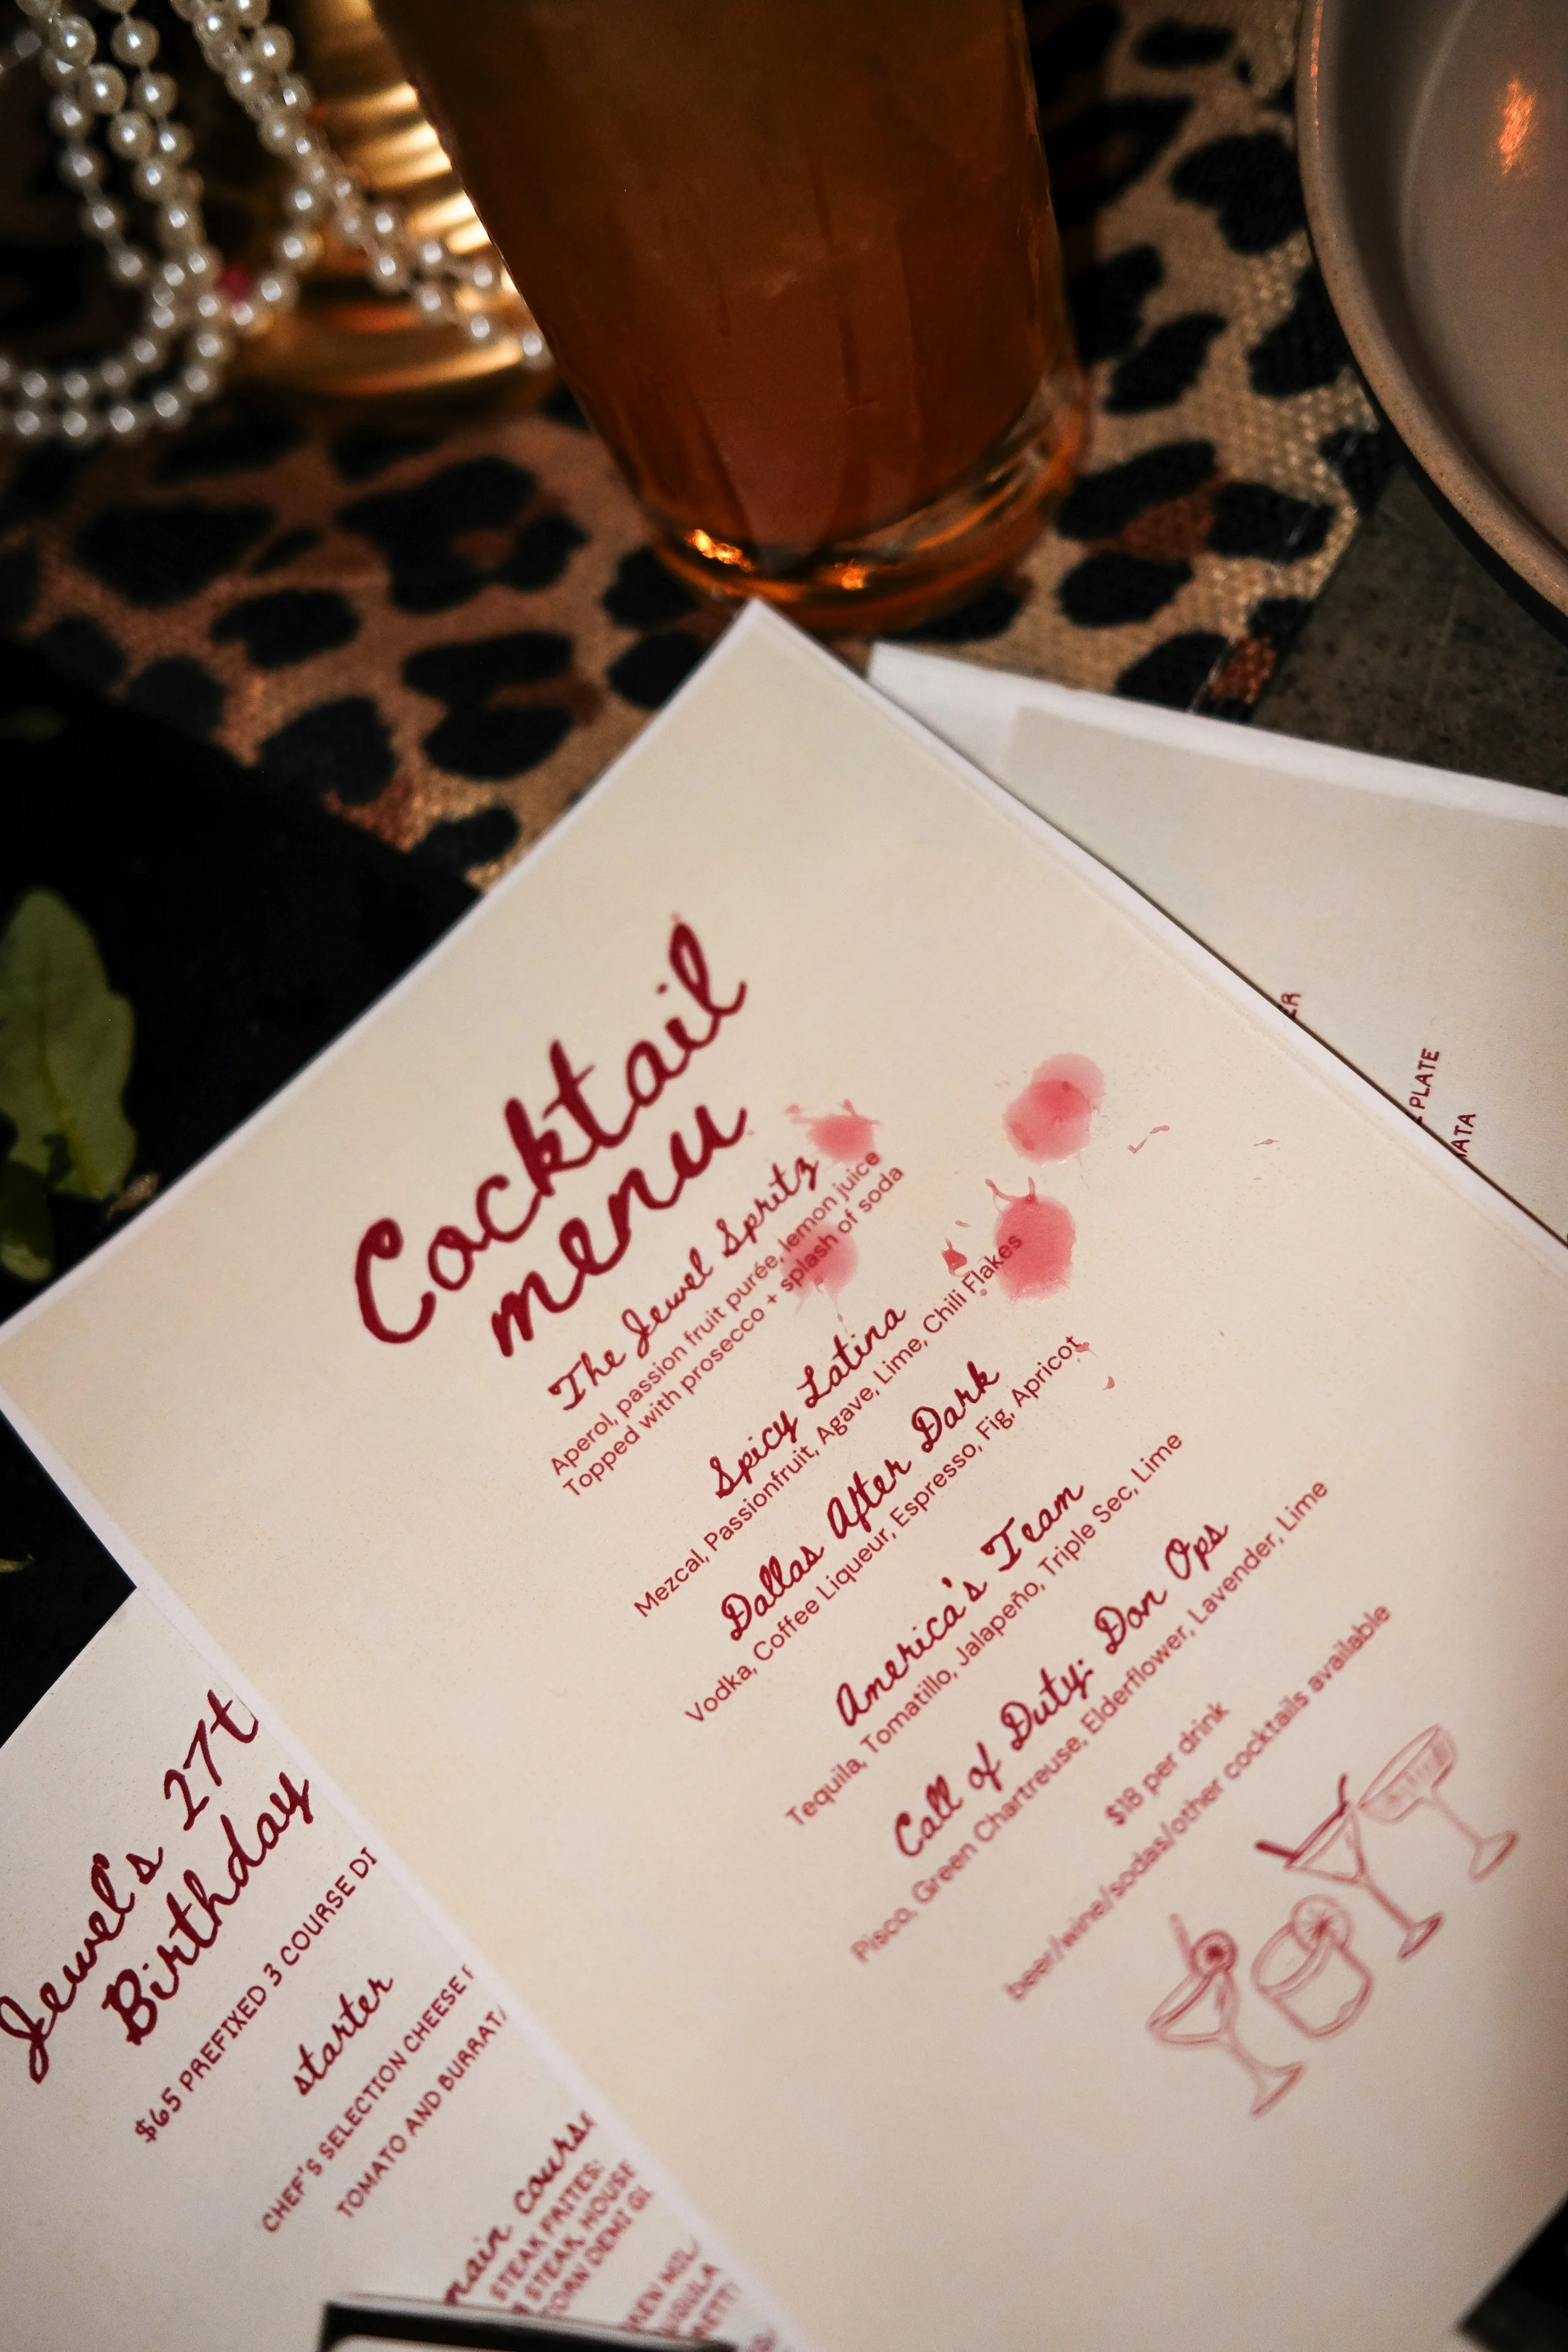 Cocktail
menu
The Jewel Spritz
Aperol, passion fruit purée, lemon juice
Topped with prosecco + splash of soda
Spicy Latina
Mezcal, Passionfruit, Agave, Lime, Chili Flakes
Dallas After Dark
Vodka, Coffee Liqueur, Espresso, Fig, Apricot
America's Team
Tequila, Tomatillo, Jalapeño, Triple Sec, Lime
Call of Duty: Don Ops
Pisco, Green Chartreuse, Elderflower, Lavender, Lime
$18 per drink
beer/wine/sodas/other cocktails available
Jewel's 27t
Birthday
$65 PREFIXED 3 COURSE DI
starter
CHEF'S SELECTION CHEESE
TOMATO AND BURRATA
main course
STEAK FRITES:
STEAK, HOUSE
DEMI GL
PLATE
ATA
ER